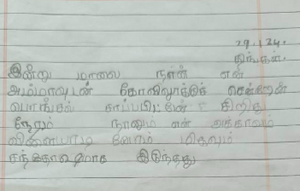 29.1.24.
திங்கள்.
இன்று மாலை நான் என்
அம்மாவுடன் கோவிலுக்குச் சென்றேன்
பொங்கல் சாப்பிட்டேன் சிறிது
நேரம் நானும் என் அக்காவும்
விளையாடி னோம் மிகவும்
சந்தோஷமாக இருந்தது